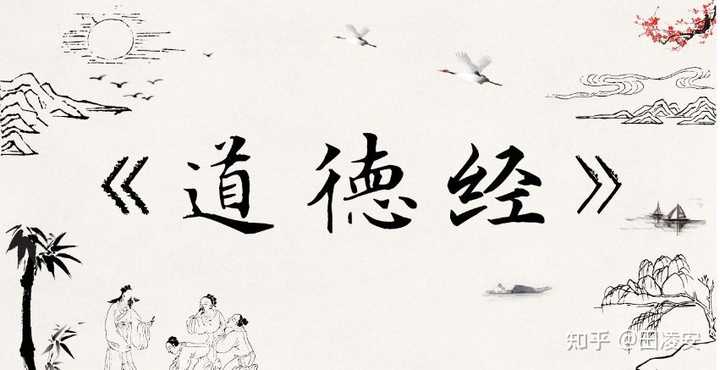 《道德经》
知乎 @田凌安